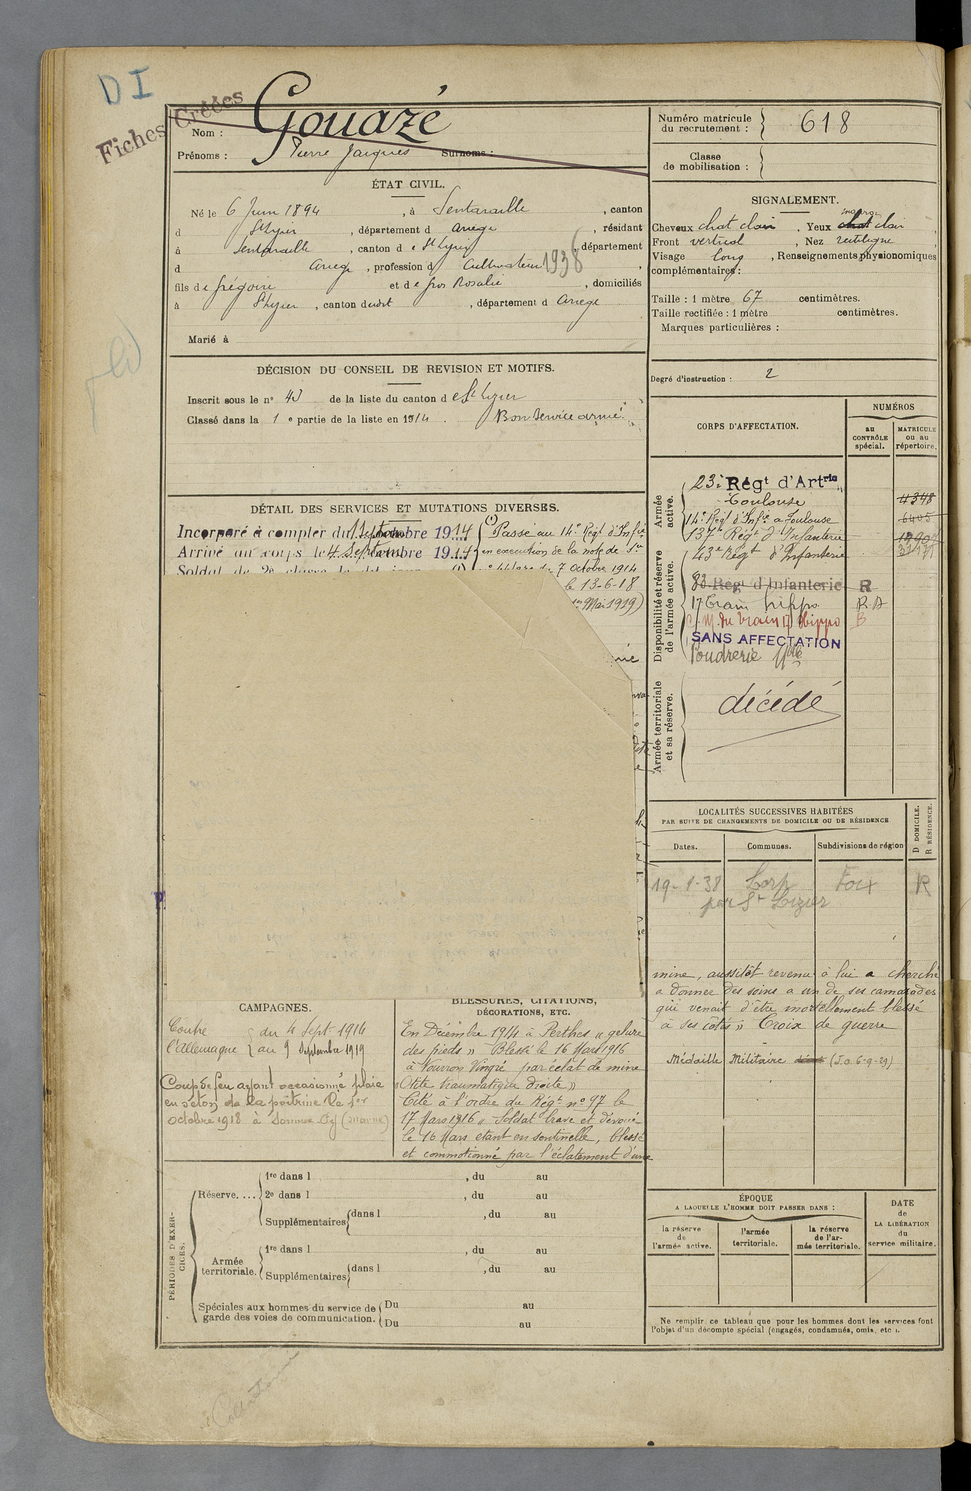 D I
Fiches Créées
Nom : Gouazé
Prénoms : Pierre Jacques Surnoms :
Numéro matricule du recrutement : 618
Classe de mobilisation :
ÉTAT CIVIL.
Né le 6 Juin 1894, à Sentaraille, canton
d St Lizier, département d Ariège, résidant
à Sentaraille, canton d e St Lizier, département
d Ariège, profession d Cultivateur 1938
fils de Grégoire et de Gros Rosalie, domiciliés
à St Lizier, canton dudit, département d Ariège
Marié à
SIGNALEMENT.
Cheveux chat clair, Yeux marron clair
Front vertical, Nez rectiligne
Visage long, Renseignements physionomiques
complémentaires :
Taille : 1 mètre 67 centimètres.
Taille rectifiée : 1 mètre centimètres.
Marques particulières :
Degré d'instruction : 2
DÉCISION DU CONSEIL DE REVISION ET MOTIFS.
Inscrit sous le n° 43 de la liste du canton d e St Lizier
Classé dans la 1 e partie de la liste en 1914. Bon service armé
DÉTAIL DES SERVICES ET MUTATIONS DIVERSES.
Incorporé à compter du 4 Septembre 1914
Arrivé au corps le 4 Septembre 1914
Soldat de 2e classe le dit jour
Passé au 14e Régt d'Infie
en exécution de la note de
du 7 octobre 1914
le 13-6-18
Mai 1919)
CORPS D'AFFECTATION.
NUMÉROS
au CONTRÔLE spécial.
MATRICULE ou au répertoire.
Armée active.
23e Régt d'Artrie
Toulouse 4348
14e Régt d'Infie a Toulouse 6405
137e Régt d'Infanterie
43e Régt d'Infanterie
Disponibilité et réserve de l'armée active.
83 Régt d'Infanterie R
17 Train hippo. R.D
C.M. du Train 17 Hippo B
SANS AFFECTATION
Poudrerie
Armée territoriale et sa réserve.
décédé
LOCALITÉS SUCCESSIVES HABITÉES
PAR SUITE DE CHANGEMENTS DE DOMICILE OU DE RÉSIDENCE
Dates. Communes. Subdivisions de région
D DOMICILE.
R RÉSIDENCE.
19-1-38 Lorp Foix R
par St Lizier
mine, aussitôt revenu à lui a cherché
a donner des soins a un de ses camarades
qui venait d'être mortellement blessé
a ses côtés » Croix de guerre
Médaille Militaire (J.O. 6-9-29)
CAMPAGNES.
Contre l'Allemagne
du 4 Sept 1916
au 9 Septembre 1919
Coup de feu ayant occasionné plaie
en séton de la poitrine le 1er
octobre 1918 à Somme Py (marne)
BLESSURES, CITATIONS,
DÉCORATIONS, ETC.
En Décembre 1914 à Perthes « gelure
des pieds » Blessé le 16 Mars 1916
à Fourron Vingré par éclat de mine
« Otite traumatique droite »
Cité à l'ordre du Régt n° 97 le
17 Mars 1916 « Soldat brave et dévoué
le 16 Mars etant en sentinelle, blessé
et commotionné par l'éclatement d'une
PÉRIODES D'EXERCICES.
Réserve....
1re dans l , du au
2e dans l , du au
Supplémentaires dans l , du au
Armée territoriale.
1re dans l , du au
Supplémentaires dans l , du au
Spéciales aux hommes du service de garde des voies de communication.
Du au
Du au
ÉPOQUE
A LAQUELLE L'HOMME DOIT PASSER DANS :
la réserve de l'armée active.
l'armée territoriale.
la réserve de l'armée territoriale.
DATE de LA LIBÉRATION du service militaire.
Ne remplir ce tableau que pour les hommes dont les services font
l'objet d'un décompte spécial (engagés, condamnés, omis, etc.).